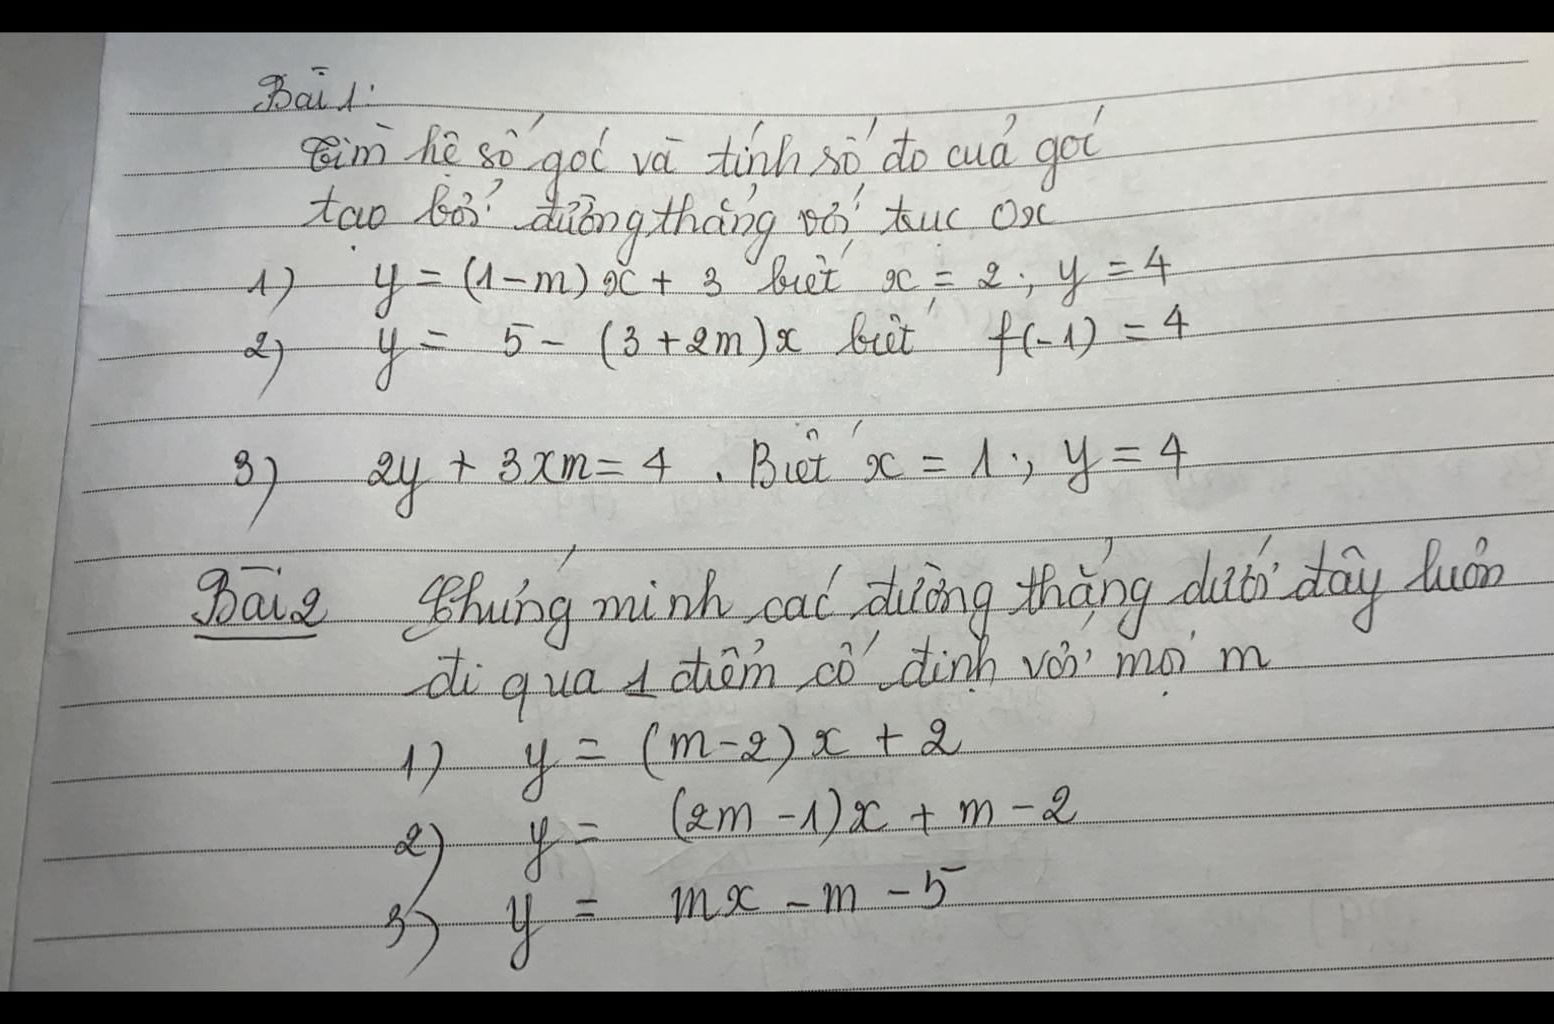 Bài 1:
Tìm hệ số góc và tính số đo của góc
tạo bởi đường thẳng với trục Ox
1) y = (1-m)x + 3 biết x = 2; y = 4
2) y = 5 - (3+2m)x biết f(-1) = 4
3) 2y + 3xm = 4. Biết x = 1; y = 4
Bài 2 Chứng minh các đường thẳng dưới đây luôn
đi qua 1 điểm cố định với mọi m
1) y = (m-2)x + 2
2) y = (2m-1)x + m - 2
3) y = mx - m - 5